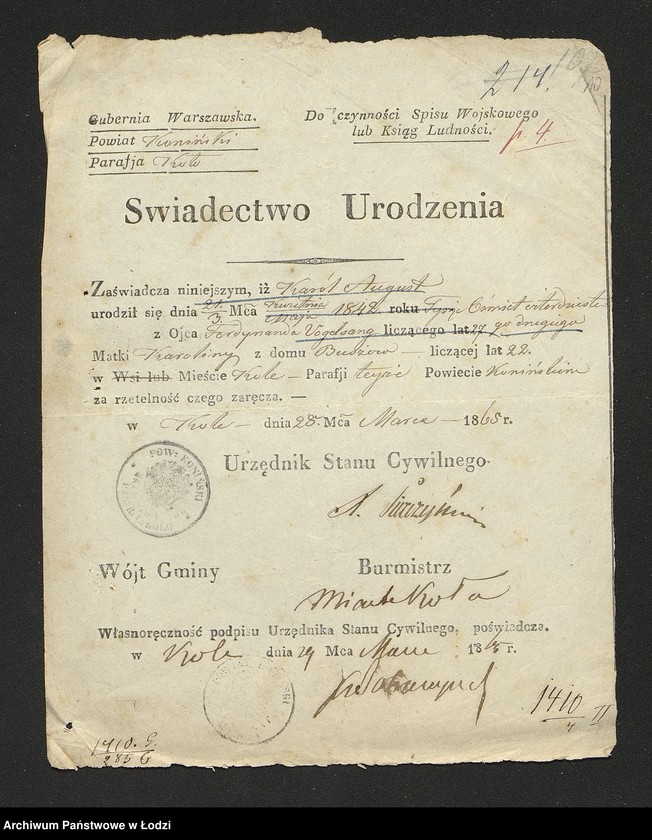 214.
Gubernia Warszawska.
Powiat Koniński
Parafja Koło
Do Czynności Spisu Wojskowego
lub Ksiąg Ludności.
p. 4
Swiadectwo Urodzenia
Zaświadcza niniejszym, iż Karól August
urodził się dnia 21/3 Mca Kwietnia Maja 1842 roku Tysiąc Ośmset czterdzieste
z Ojca Ferdynanda Vogelsang liczącego lat 27 go drugiego
Matki Karoliny z domu liczącej lat 22.
w Wsi lub Mieście Kole Parafji tejże Powiecie Konińskim
za rzetelność czego zaręcza.
w Kole dnia 28 Mca Marca 1865 r.
POW: KONIŃSKI
Urzędnik Stanu Cywilnego
Wójt Gminy
Burmistrz
Miasta Koła
Własnoręczność podpisu Urzędnika Stanu Cywilnego, poświadcza.
w Kole dnia 29 Mca Marca 1865 r.
1410/4 II
1410. G.
285 G
Archiwum Państwowe w Łodzi